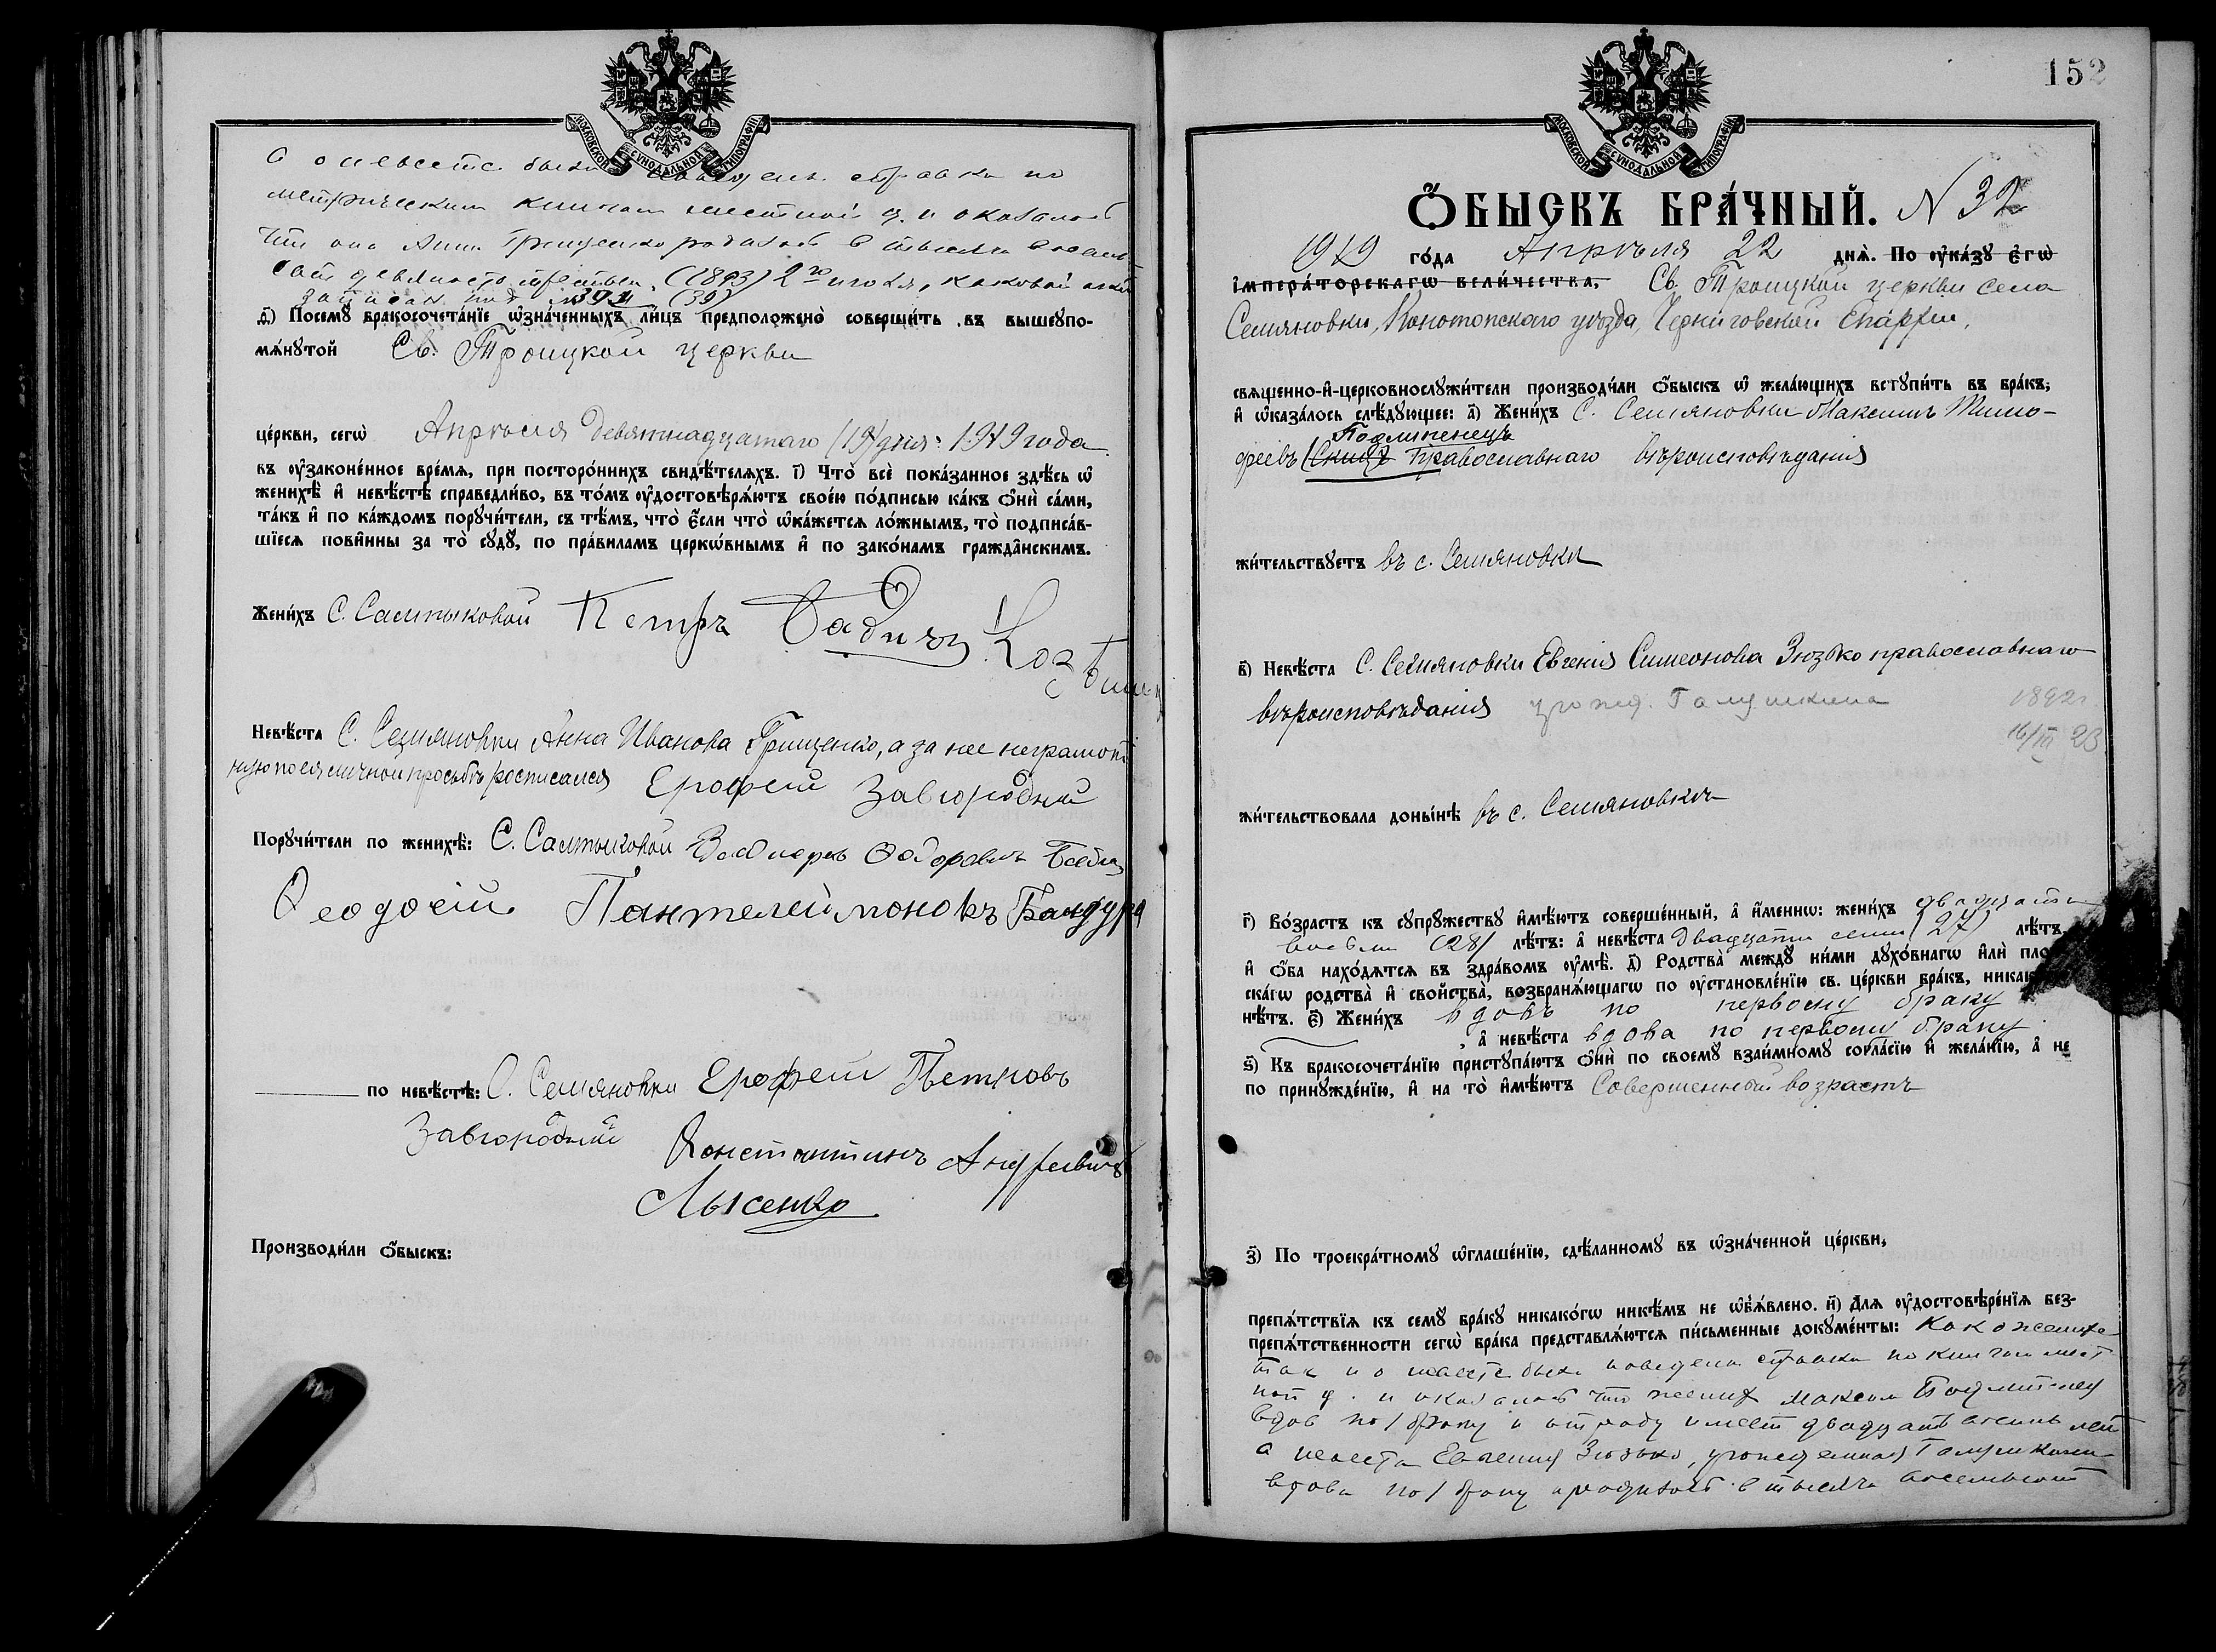 МОСКОВСКОЙ СѴНОДАЛЬНОЙ ТИПОГРАФІИ
О невесте была наведена справка по
метрическим книгам местной ц. и оказалось
что она Анна Грищенко родилась в тысяча восемь-
сот девяносто третьем (1893) 2го июля, каковой акт
записан под №
д҃і) Посемꙋ̀ бракосочета́нїе ѡ҆зна́ченныхъ ли́цъ предположено̀ соверши́ть въ вышеꙋпо-
мѧ́нꙋтой Св. Троицкой церкви
це́ркви, сегѡ̀ Апрѣля девятнадцатаго (19) дня: 1919 года
въ ᲂу҆законе́нное вре́мѧ, при посторо́ннихъ свидѣ́телѧхъ. і҃) Что̀ всѐ пока́занное здѣ́сь ѡ҆
женихѣ̀ и҆ невѣ́стѣ справедли́во, въ то́мъ ᲂу҆достовѣрѧ́ютъ свое́ю по́дписью ка́къ ѻ҆нѝ са́ми,
та́къ и҆ по ка́ждомъ порꙋчи́тели, съ тѣ́мъ, что̀ є҆́сли что̀ ѡ҆ка́жетсѧ ло́жнымъ, то̀ подписа́в-
шїесѧ пови́нны за то̀ сꙋдꙋ̀, по пра́виламъ церкѡ́внымъ и҆ по зако́намъ гражда́нскимъ.
Жени́хъ С. Салтыковой Петръ
Невѣ́ста С. Семяновки Анна Иванова Грищенко, а за нее неграмот
ную по ея личной просьбѣ росписался Ерофей Завгородній
Порꙋчи́тели по женихѣ̀: С. Салтыковой Федоровичъ
Феодосій Пантелеймоновъ Бандура
по невѣ́стѣ: С. Семяновки Ерофей Петровъ
Завгородній Константинъ Андреевичъ
Лысенко
Производи́ли ѻ҆́быскъ:
152
МОСКОВСКОЙ СѴНОДАЛЬНОЙ ТИПОГРАФІИ
Ѻ҆́БЫСКЪ БРА́ЧНЫЙ. N 32
1919 го́да Апрѣля 22 днѧ̀. По ᲂу҆ка́зꙋ є҆гѡ̀
і҆мпера́торскагѡ вели́чества, Св. Троицкой церкви села
Семяновки, Конотопскаго уѣзда, Черниговской Епархіи,
свѧще́нно-и҆-церковнослꙋжи́тели производи́ли ѻ҆́быскъ ѡ҆ жела́ющихъ встꙋпи́ть въ бра́къ,
и҆ ѡ҆каза́лось слѣ́дꙋющее: а҃) Жени́хъ С. Семяновки Максимъ Тимо-
Подлипенецъ
феевъ православнаго вѣроисповѣданія
жи́тельствꙋетъ въ с. Семяновки
в҃) Невѣ́ста С. Семяновки Евгенія Симеонова Зюзько православнаго
вѣроисповѣданія урожд. Галушкина 1892
16/III 23
жи́тельствовала доны́нѣ въ с. Семяновкѣ
г҃) Во́зрастъ къ сꙋпрꙋ́жествꙋ и҆мѣ́ютъ соверше́нный, а҆ и҆́меннѡ: жени́хъ двадцати
восьми (28) лѣ́тъ: а҆ невѣ́ста двадцати семи (27) лѣ́тъ
и҆ ѻ҆́ба нахо́дѧтсѧ въ здра́вомъ ᲂу҆мѣ̀. д҃) Родства̀ междꙋ̀ ни́ми дꙋхо́внагѡ и҆лѝ пло
ска́гѡ родства̀ и҆ сво́йства̀, возбранѧ́ющагѡ по ᲂу҆становле́нїю св. це́ркви бра́къ, никак
нѣ́тъ. є҃) Жени́хъ вдовъ по первому браку
, а҆ невѣ́ста вдова по первому браку
ѕ҃) Къ бракосочета́нїю пристꙋпа́ютъ ѻ҆нѝ по своемꙋ̀ взаи́мномꙋ согла́сїю и҆ жела́нїю, а҆ не
по принꙋжде́нїю, и҆ на то̀ и҆мѣ́ютъ Совершенный возрастъ
з҃) По троекра́тномꙋ ѡ҆глаше́нїю, сдѣ́ланномꙋ въ ѡ҆зна́ченной це́ркви,
препѧ́тствїѧ къ семꙋ̀ бра́кꙋ никако́гѡ никѣ́мъ не ѡ҆б̾ѧ́влено. и҃) Длѧ ᲂу҆достовѣре́нїѧ без-
препѧ́тственности сегѡ̀ бра́ка представлѧ́ютсѧ пи́сьменные докꙋме́нты: Как о женихе
так и о невесте была наведена справка по книгам мест
ной ц. и оказалось что жених Максим Подлипенец
вдов по 1 браку и от роду имеет двадцать восемь лет
а невеста Евгения Зюзько, урожденная Галушкина
вдова по 1 браку и родилась в тысяча восемьсот